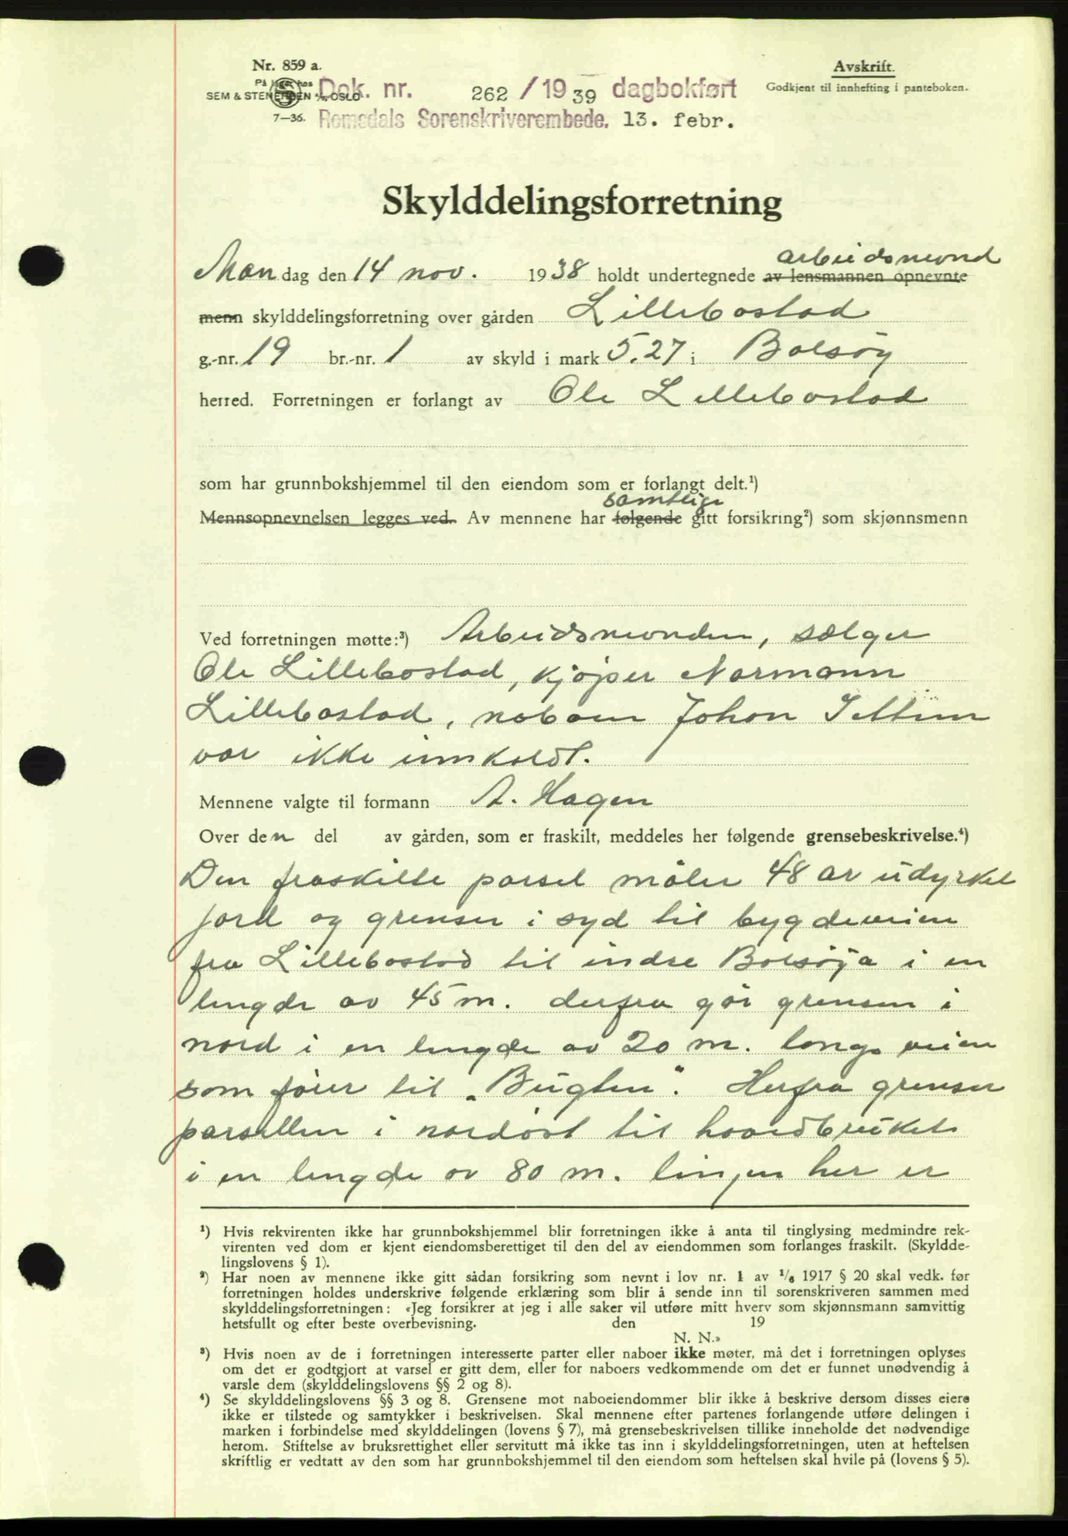 Nr. 859 a.
På lager hos
SEM & STENERSEN A/S, OSLO
7—36.
Dok. nr. 262 / 19 39 dagbokført
Romsdals Sorenskriverembede. 13. febr.
Avskrift.
Godkjent til innhefting i panteboken.
Skylddelingsforretning
Mandag den 14 nov. 1938 holdt undertegnede av lensmannen opnevnte arbeidsnevnd
menn skylddelingsforretning over gården Lillebostad
g.-nr. 19 br.-nr. 1 av skyld i mark 5.27 i Bolsøy
herred. Forretningen er forlangt av Ole Lillebostad
som har grunnbokshjemmel til den eiendom som er forlangt delt.¹)
Mennsopnevnelsen legges ved. Av mennene har følgende samtlige gitt forsikring²) som skjønnsmenn
Ved forretningen møtte:³) Arbeidsnevnden, sælger
Ole Lillebostad, kjøper Normann
Lillebostad, naboen Johan
var ikke innkaldt.
Mennene valgte til formann A. Hagen
Over den del av gården, som er fraskilt, meddeles her følgende grensebeskrivelse.⁴)
Den fraskilte parsel måler 48 ar udyrket
jord og grenser i syd til bygdeveien
fra Lillebostad til indre Bolsøya i en
lengde av 45 m. derfra går grensen i
nord i en lengde av 20 m. langs veien
som fører til „Bugten“. Herfra grenser
parsellen i nordøst til hovedbruket
i en lengde av 80 m. linjen her er
¹) Hvis rekvirenten ikke har grunnbokshjemmel blir forretningen ikke å anta til tinglysing medmindre rek-
virenten ved dom er kjent eiendomsberettiget til den del av eiendommen som forlanges fraskilt. (Skyldde-
lingslovens § 1).
²) Har noen av mennene ikke gitt sådan forsikring som nevnt i lov nr. 1 av 1/6 1917 § 20 skal vedk. før
forretningen holdes underskrive følgende erklæring som blir å sende inn til sorenskriveren sammen med
skylddelingsforretningen: «Jeg forsikrer at jeg i alle saker vil utføre mitt hverv som skjønnsmann samvittig
hetsfullt og efter beste overbevisning. den 19
N. N.»
³) Hvis noen av de i forretningen interesserte parter eller naboer ikke møter, må det i forretningen oplyses
om det er godtgjort at varsel er gitt dem, eller for naboers vedkommende om det er funnet unødvendig å
varsle dem (skylddelingslovens §§ 2 og 8).
⁴) Se skylddelingslovens §§ 3 og 8. Grensene mot naboeiendommer blir ikke å beskrive dersom disses eiere
ikke er tilstede og samtykker i beskrivelsen. Skal mennene efter partenes forlangende utføre delingen i
marken i forbindelse med skylddelingen (lovens § 7), må grensebeskrivelsen tillike inneholde det nødvendige
herom. Stiftelse av bruksrettighet eller servitutt må ikke tas inn i skylddelingsforretningen, uten at heftelsen
skriftlig er vedtatt av den som har grunnbokshjemmel til den eiendom som heftelsen skal hvile på (lovens § 5).